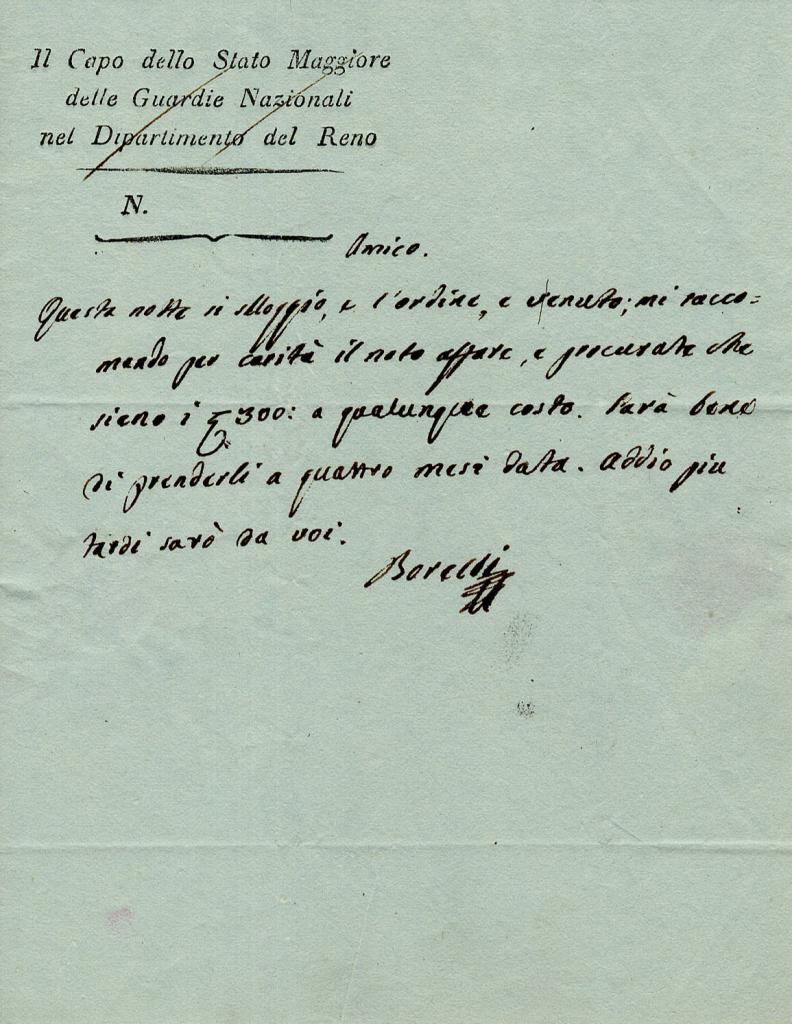 Il Capo dello Stato Maggiore
delle Guardie Nazionali
nel Dipartimento del Reno
N.
Amico.
Questa notte si sloggio, e l'ordine, e venuto; mi racco=
mando per carità il noto affare, e procurate che
sieno i 300: a qualunque costo. Sarà bene
di prenderli a quattro mesi data. Addio piu
tardi sarò da voi.
Borelli